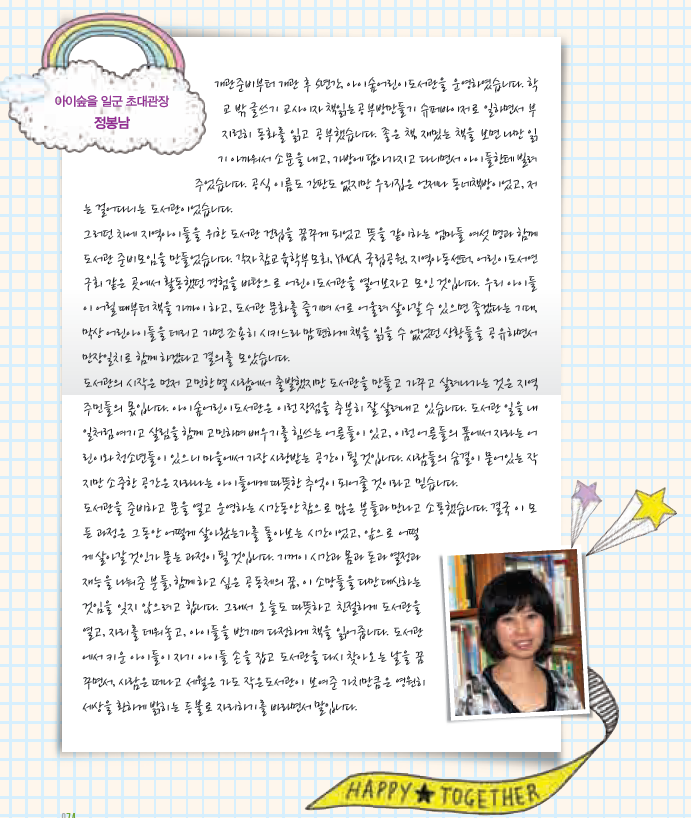 아이숲을 일군 초대관장
정봉남
개관준비부터 개관 후 5년간, 아이숲어린이도서관을 운영하였습니다. 학
교 밖 글쓰기 교사이자 책읽는공부방만들기 슈퍼바이저로 일하면서 부
지런히 동화를 읽고 공부했습니다. 좋은 책 재밌는 책을 보면 나만 읽
기 아까워서 소문을 내고, 가방에 담아가지고 다니면서 아이들한테 빌려
주었습니다. 공식 이름도 간판도 없지만 우리집은 언제나 동네책방이었고, 저
는 걸어다니는 도서관이었습니다.
그러던 차에 지역아이들을 위한 도서관 건립을 꿈꾸게 되었고 뜻을 같이하는 엄마들 여섯 명과 함께
도서관 준비모임을 만들었습니다. 각자 참교육학부모회, YMCA, 국립공원, 지역아동센터, 어린이도서연
구회 같은 곳에서 활동했던 경험을 바탕으로 어린이도서관을 열어보자고 모인 것입니다. 우리 아이들
이 어릴 때부터 책을 가까이 하고, 도서관 문화를 즐기며 서로 어울려 살아갈 수 있으면 좋겠다는 기대,
막상 어린아이들을 데리고 가면 조용히 시키느라 맘 편하게 책을 읽을 수 없었던 상황들을 공유하면서
만장일치로 함께 하겠다고 결의를 모았습니다.
도서관의 시작은 먼저 고민한 몇 사람에서 출발했지만 도서관을 만들고 가꾸고 살려나가는 것은 지역
주민들의 몫입니다. 아이숲어린이도서관은 이런 장점을 충분히 잘 살려내고 있습니다. 도서관 일을 내
일처럼 여기고 살림을 함께 고민하며 배우기를 힘쓰는 어른들이 있고, 이런 어른들의 품에서 자라는 어
린이와 청소년들이 있으니 마을에서 가장 사랑받는 공간이 될 것입니다. 사람들의 숨결이 묻어있는 작
지만 소중한 공간은 자라나는 아이들에게 따뜻한 추억이 되어줄 것이라고 믿습니다.
도서관을 준비하고 문을 열고 운영하는 시간동안 참으로 많은 분들과 만나고 소통했습니다. 결국 이 모
든 과정은 그동안 어떻게 살아왔는가를 돌아보는 시간이었고, 앞으로 어떻
게 살아갈 것인가 묻는 과정이 될 것입니다. 기꺼이 시간과 몸과 돈과 열정과
재능을 나눠준 분들, 함께 하고 싶은 공동체의 꿈, 이 소망들을 다만 대신하는
것임을 잊지 않으려고 합니다. 그래서 오늘도 따뜻하고 친절하게 도서관을
열고, 자리를 데워놓고, 아이들을 반기며 다정하게 책을 읽어 줍니다. 도서관
에서 키운 아이들이 자기 아이들 손을 잡고 도서관을 다시 찾아오는 날을 꿈
꾸면서, 사람은 떠나고 세월은 가도 작은도서관이 보여준 가치만큼은 영원히
세상을 환하게 밝히는 등불로 자리하기를 바라면서 말입니다.
HAPPY ★ TOGETHER